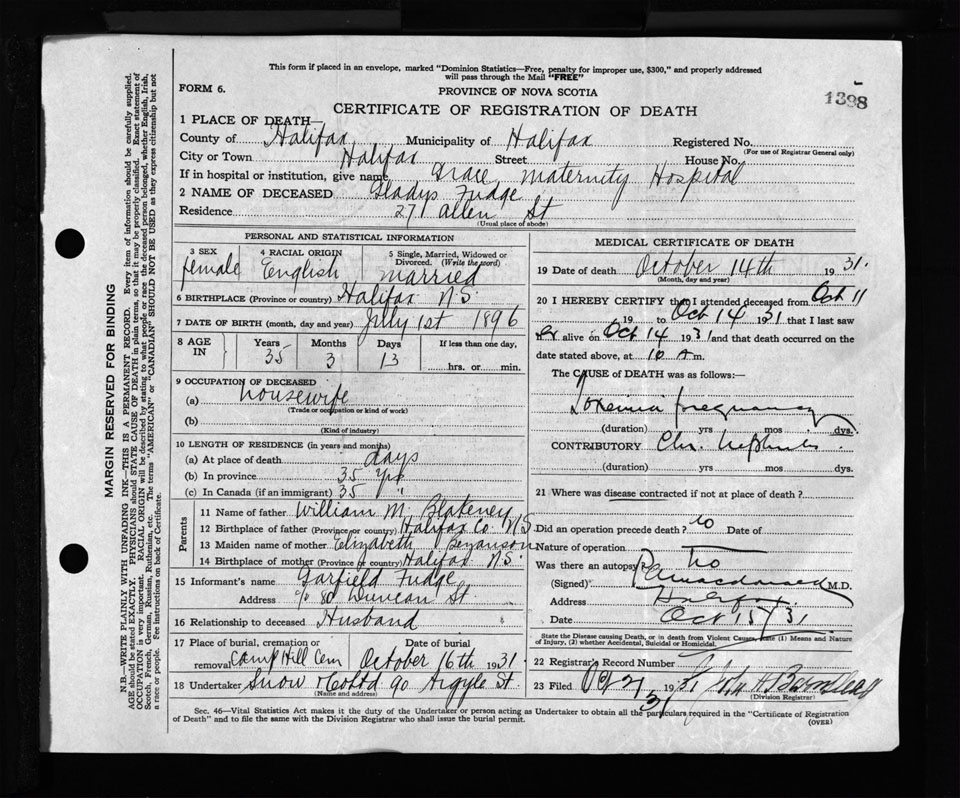 This form if placed in an envelope, marked "Dominion Statistics—Free, penalty for improper use, $300," and properly addressed
will pass through the Mail "FREE"
FORM 6.
PROVINCE OF NOVA SCOTIA
1398
CERTIFICATE OF REGISTRATION OF DEATH
1 PLACE OF DEATH—
County of Halifax Municipality of Halifax Registered No.
(For use of Registrar General only)
City or Town Halifax Street House No.
If in hospital or institution, give name Grace Maternity Hospital
2 NAME OF DECEASED Gladys Fudge
Residence 27 Allen St
(Usual place of abode)
PERSONAL AND STATISTICAL INFORMATION
3 SEX 4 RACIAL ORIGIN 5 Single, Married, Widowed or Divorced. (Write the word)
female English married
6 BIRTHPLACE (Province or country) Halifax N.S.
7 DATE OF BIRTH (month, day and year) July 1st 1896
8 AGE IN Years Months Days If less than one day,
35 3 13 hrs. or min.
9 OCCUPATION OF DECEASED
(a) housewife
(Trade or occupation or kind of work)
(b)
(Kind of industry)
10 LENGTH OF RESIDENCE (in years and months)
(a) At place of death days
(b) In province 35 yrs
(c) In Canada (if an immigrant) 35 "
Parents
11 Name of father William M. Blakeney
12 Birthplace of father (Province or country) Halifax Co. N.S.
13 Maiden name of mother Elizabeth Bevanson
14 Birthplace of mother (Province or country) Halifax N.S.
15 Informant's name Garfield Fudge
Address % 80 Duncan St.
16 Relationship to deceased Husband
17 Place of burial, cremation or removal Date of burial
Camp Hill Cem October 16th 1931
18 Undertaker Snow & Co Ltd 90 Argyle St
(Name and address)
MEDICAL CERTIFICATE OF DEATH
19 Date of death October 14th 1931.
(Month, day and year)
20 I HEREBY CERTIFY that I attended deceased from Oct 11
19 to Oct 14 1931 that I last saw
er alive on Oct 14 1931 and that death occurred on the
date stated above, at 10 A m.
The CAUSE of DEATH was as follows:—
Toxemia pregnancy
(duration) yrs mos dys.
CONTRIBUTORY Chr. Nephritis
(duration) yrs mos dys.
21 Where was disease contracted if not at place of death?
Did an operation precede death? no Date of
Nature of operation
Was there an autopsy? no
(Signed) Macdonald M.D.
Address Halifax
Date Oct 15/31
State the Disease causing Death, or in death from Violent Causes, state (1) Means and Nature
of Injury, (2) whether Accidental, Suicidal or Homicidal.
22 Registrar's Record Number
23 Filed Oct 21 1931
(Division Registrar)
Sec. 46—Vital Statistics Act makes it the duty of the Undertaker or person acting as Undertaker to obtain all the particulars required in the "Certificate of Registration
of Death" and to file the same with the Division Registrar who shall issue the burial permit.
(OVER)
MARGIN RESERVED FOR BINDING
N.B.—WRITE PLAINLY WITH UNFADING INK—THIS IS A PERMANENT RECORD. Every item of information should be carefully supplied.
AGE should be stated EXACTLY. PHYSICIANS should STATE CAUSE OF DEATH in plain terms, so that it may be properly classified. Exact statement of
OCCUPATION is very important. RACIAL ORIGIN will be described by stating to what people or race the deceased person belonged, whether English, Irish,
Scotch, French, German, Russian, Ruthenian, etc. The terms "AMERICAN" or "CANADIAN" SHOULD NOT BE USED as they express citizenship but not
a race or people. See instructions on back of Certificate.